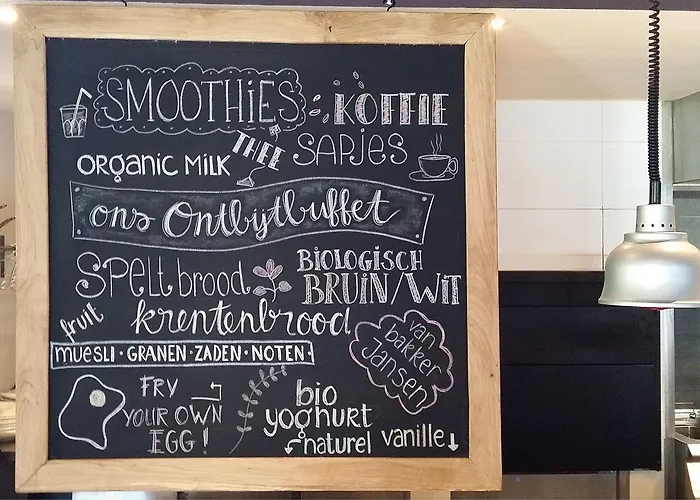 SMOOTHiES
KOFFIE
ORGANIC MILK
THEE
SAPJES
ons Ontbijtbuffet
Spelt brood
BIOLOGISCH
BRUIN/WIT
fruit
krentenbrood
muesli · GRANEN · ZADEN · NOTEN ·
van
bakker
Jansen
FRY
YOUR OWN
EGG!
bio
yoghurt
naturel
vanille